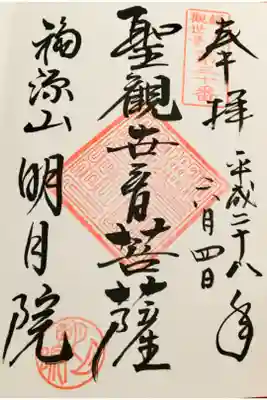 奉拝
平成二十八年
六月四日
聖觀世音菩薩
福源山明月院